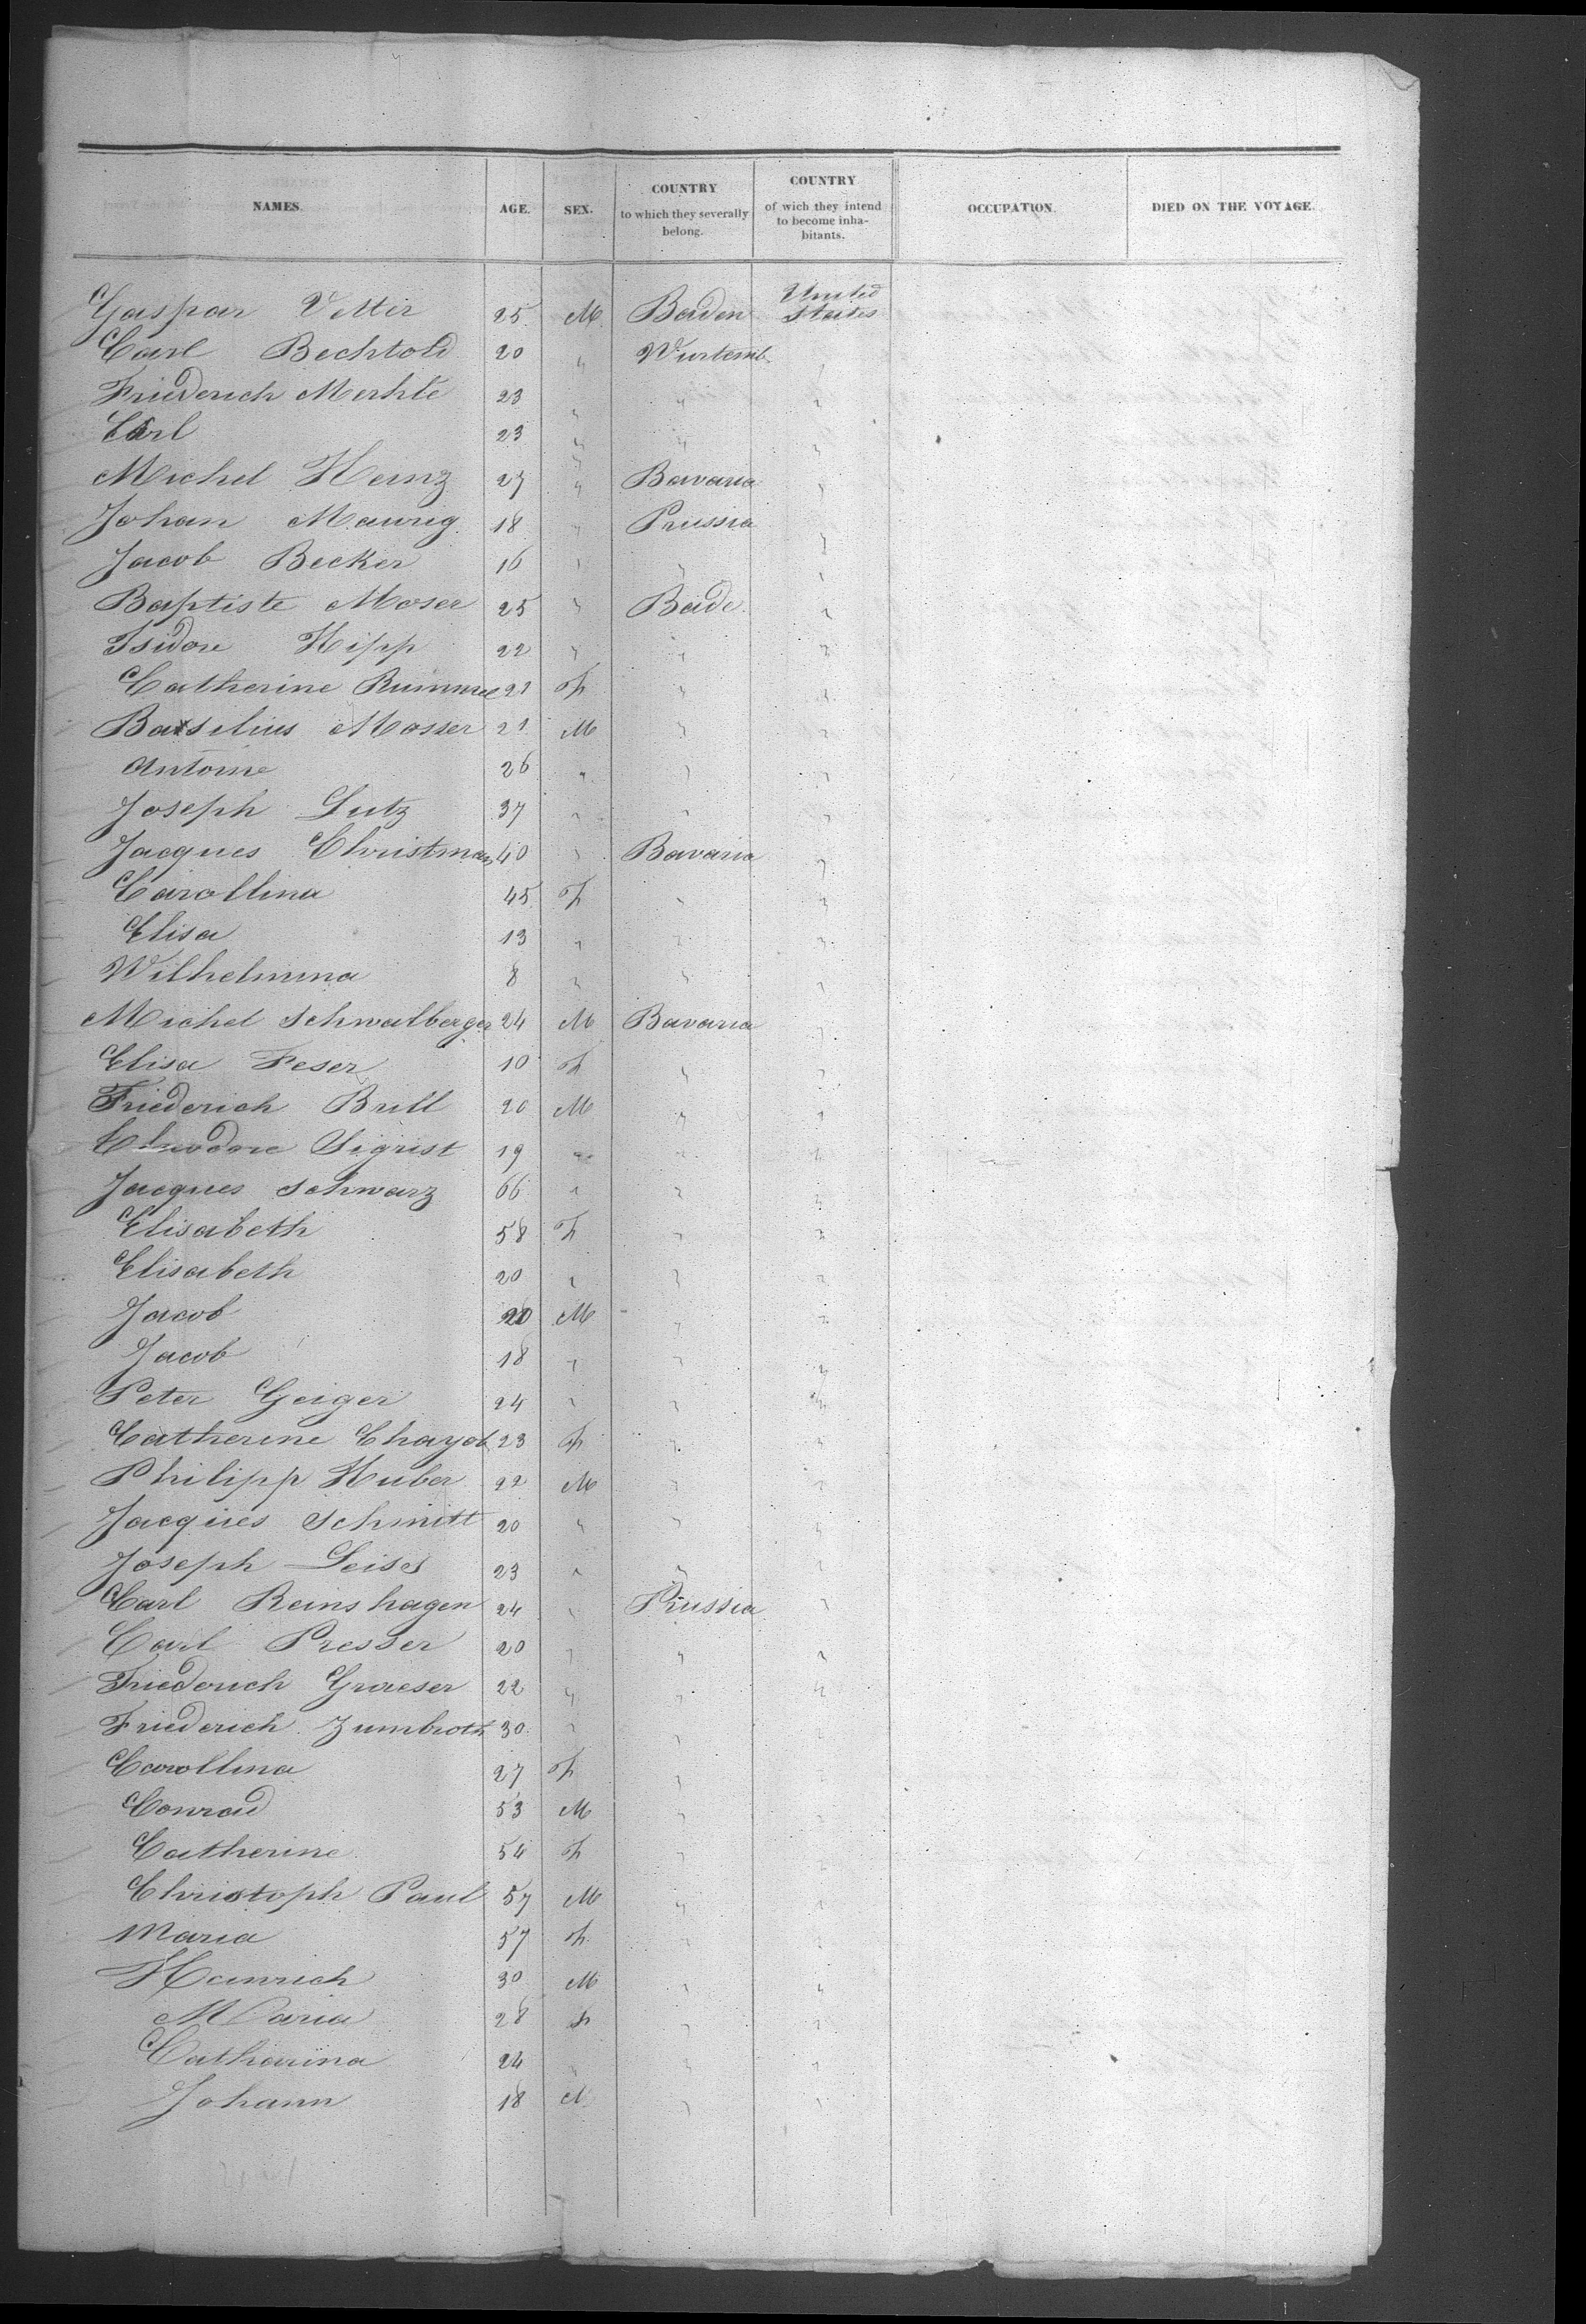 NAMES. AGE. SEX. COUNTRY to which they severally belong. COUNTRY of wich they intend to become inha-bitants. OCCUPATION. DIED ON THE VOYAGE.
Gaspar Vetter 25 M Baden United States
Carl Bechtold 20 " Wurtemb. "
Friederich Merkle 23 " " "
Carl 23 " " "
Michel Heinz 27 " Bavaria "
Johan Maurig 18 " Prussia "
Jacob Becker 16 " " "
Baptiste Moser 25 " Bade. "
Isidore Hipp 22 " " "
Catherine Rummel 21 F " "
Basilius Mosser 21 M " "
Antoine 26 " " "
Joseph Lutz 37 " " "
Jacques Christman 40 " Bavaria "
Carollina 45 F " "
Elisa 13 " " "
Wilhelmina 8 " " "
Michel Schwalberger 24 M Bavaria "
Elisa Feser 10 F " "
Friederich Brill 20 M " "
Theodore Sigrist 19 " " "
Jacques Schwarz 66 " " "
Elisabeth 58 F " "
Elisabeth 20 " " "
Jacob 20 M " "
Jacob 18 " " "
Peter Geiger 24 " " "
Catherine Chayot 23 F " "
Philipp Huber 22 M " "
Jacques Schmitt 20 " " "
Joseph Leises 23 " " "
Carl Reinshagen 24 " Prussia "
Carl Presser 20 " " "
Friederich Graeser 22 " " "
Friederich Zumbroth 30 " " "
Carollina 27 F " "
Conrad 53 M " "
Catherine 54 F " "
Christoph Paul 57 M " "
Maria 57 F " "
Heinrich 30 M " "
Maria 28 F " "
Catharina 24 " " "
Johann 18 M " "